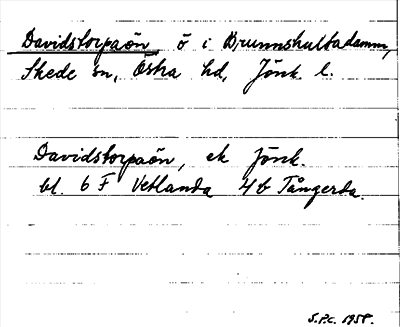 Davidstorpaön, ö i Brunnshultadamm,
Skede sn, Östra hd, Jönk. l.
Davidstorpaön, ek Jönk.
bl. 6 F Vetlanda 4b Tångerda.
S.P.C. 1958.